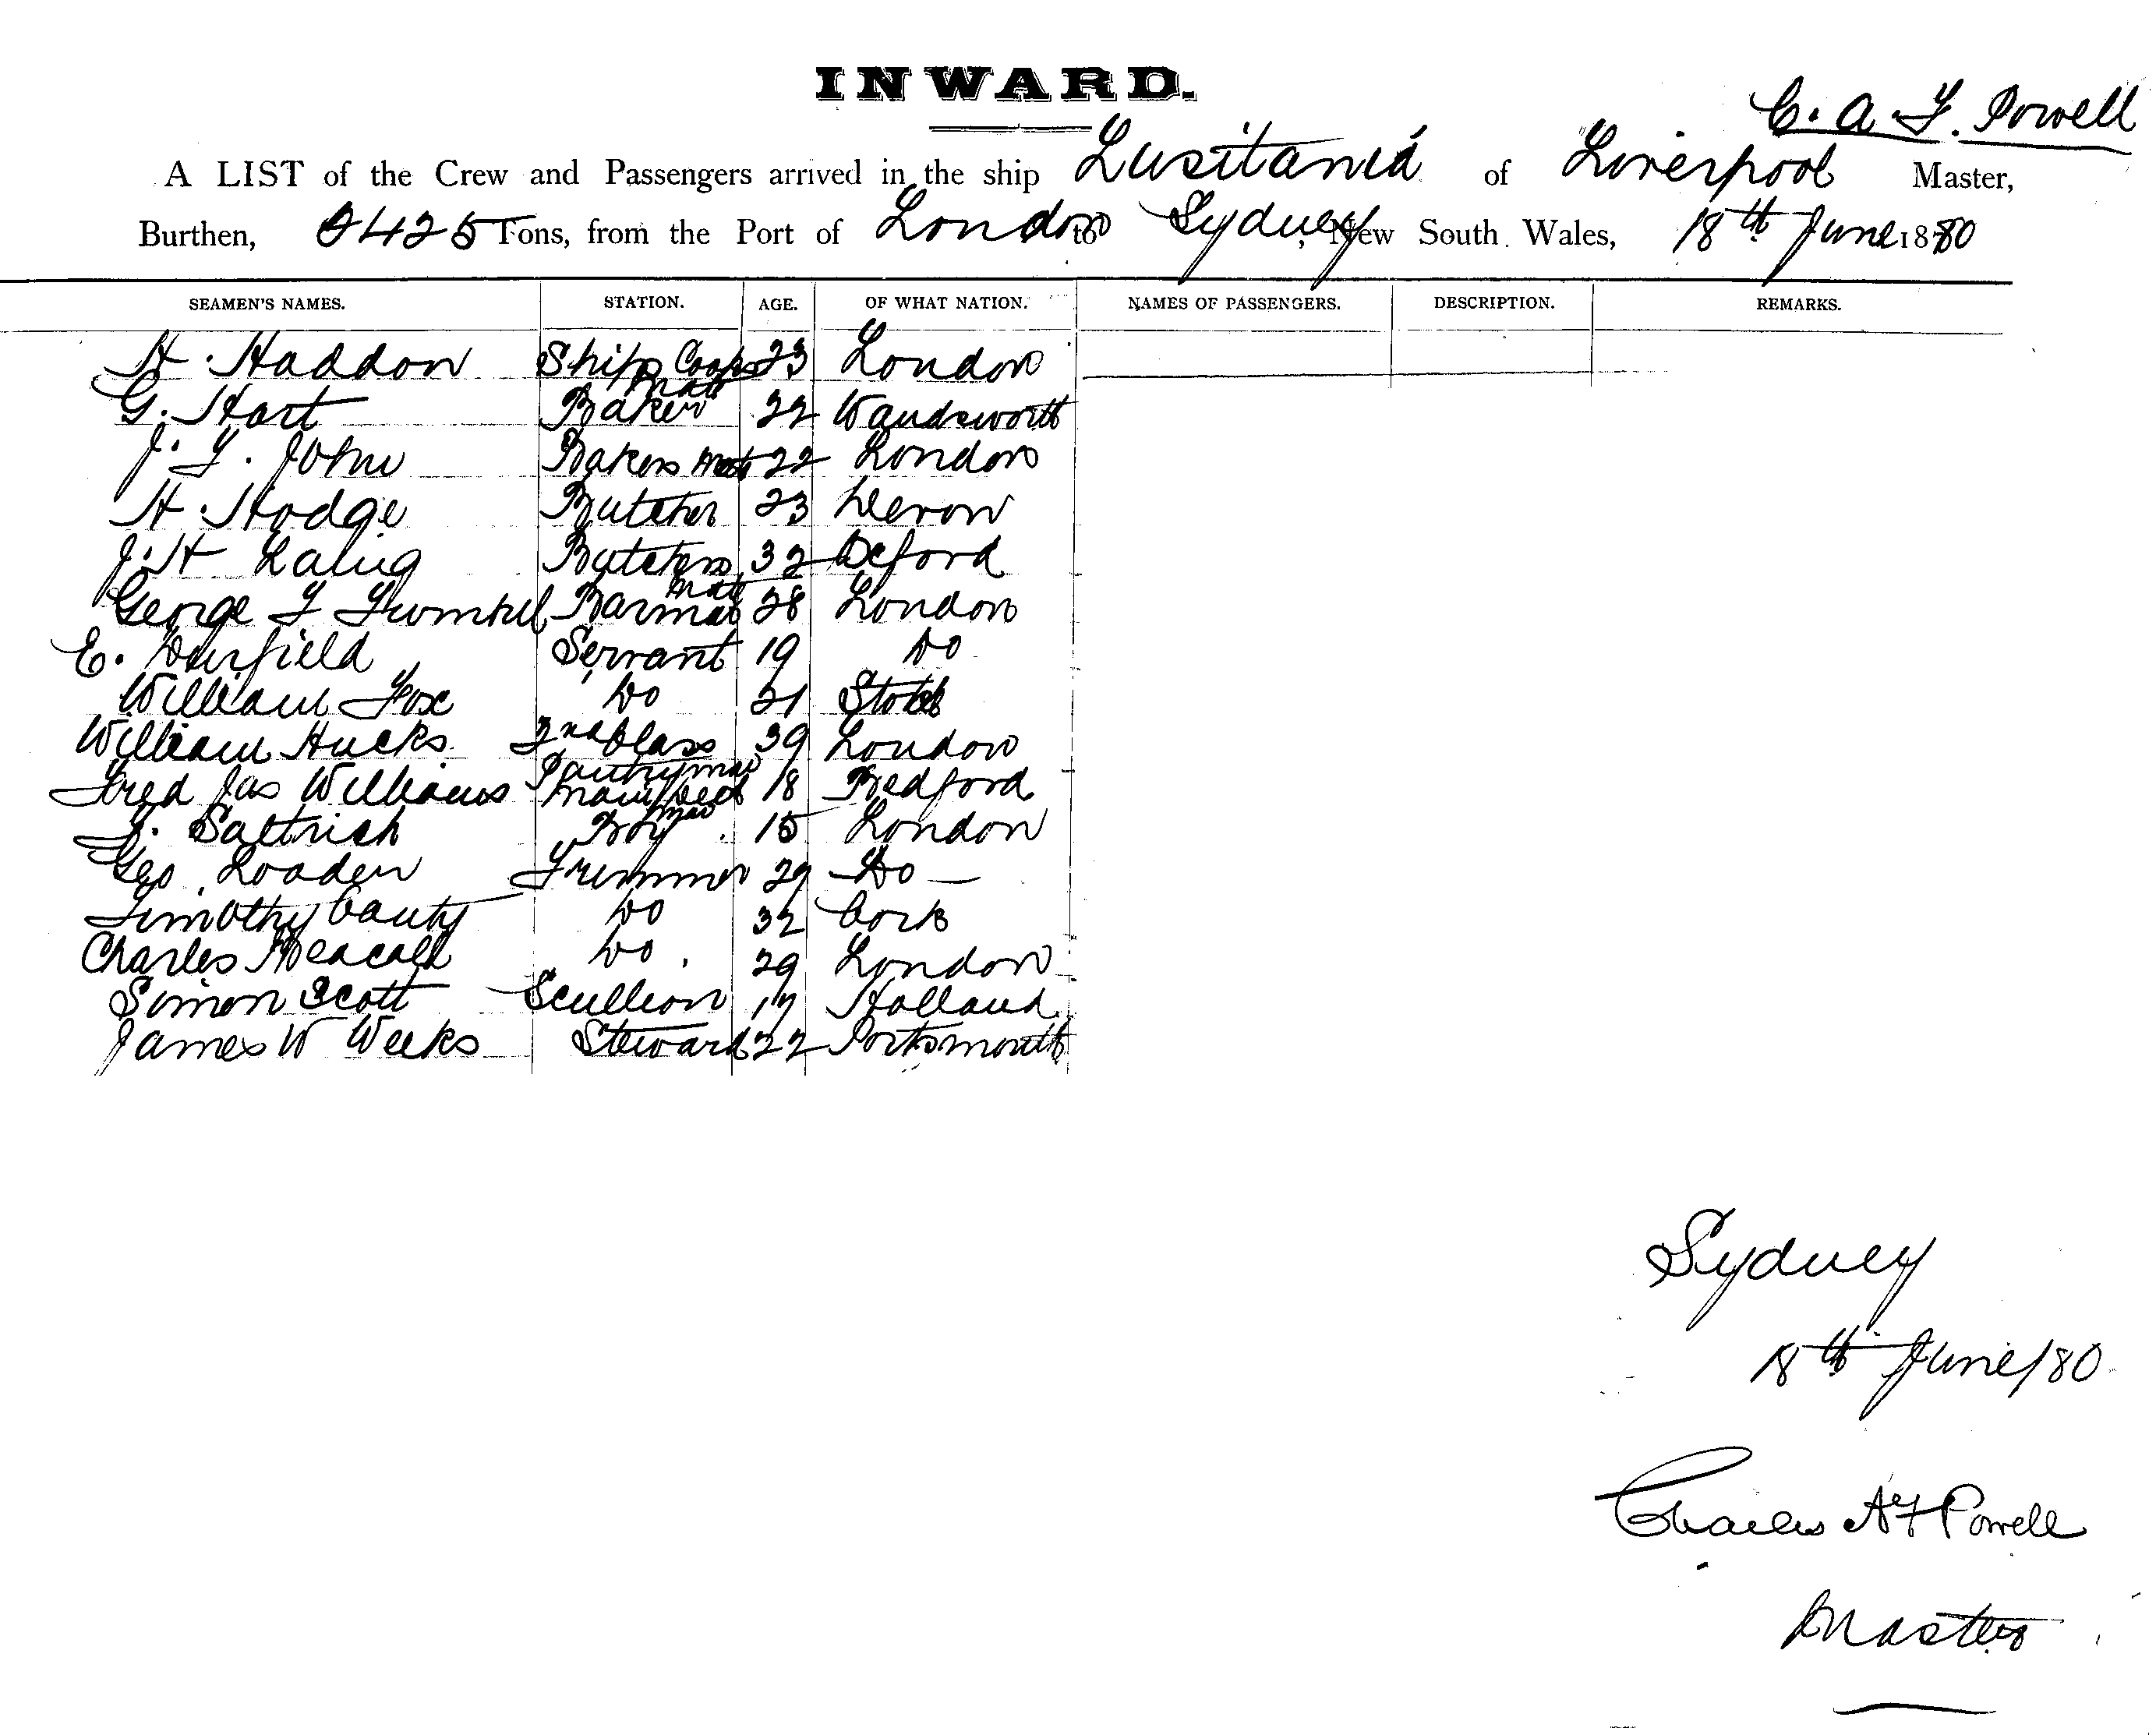 INWARD.
C. A. F. Powell
A LIST of the Crew and Passengers arrived in the ship Lusitania of Liverpool Master,
Burthen, 2425 Tons, from the Port of London to Sydney, New South Wales, 18th June 1880
SEAMEN'S NAMES. STATION. AGE. OF WHAT NATION. NAMES OF PASSENGERS. DESCRIPTION. REMARKS.
H. Haddon Ships Cooks mate 23 London
G. Hart Baker 22 Wandsworth
J. F. John Bakers Mate 22 London
H. Hodge Butcher 23 Devon
J. H Laing Butchers mate 32 Oxford
George F Barman 28 London
E. Durfield Servant 19 Do
William Fox Do 21
William Hucks 2nd Class Pantryman 39 London
Fred Jas Williams man 18 Bedford
Saltrich Boy 15 London
Geo. Loaden Trimmer 29 Do
Timothy Canty Do 32 Cork
Charles Do. 29 London
Simon Scott Scullion 17 Holland
James W Weeks Steward 22 Portsmouth
Sydney
18th June/80
Charles A F Powell
Master